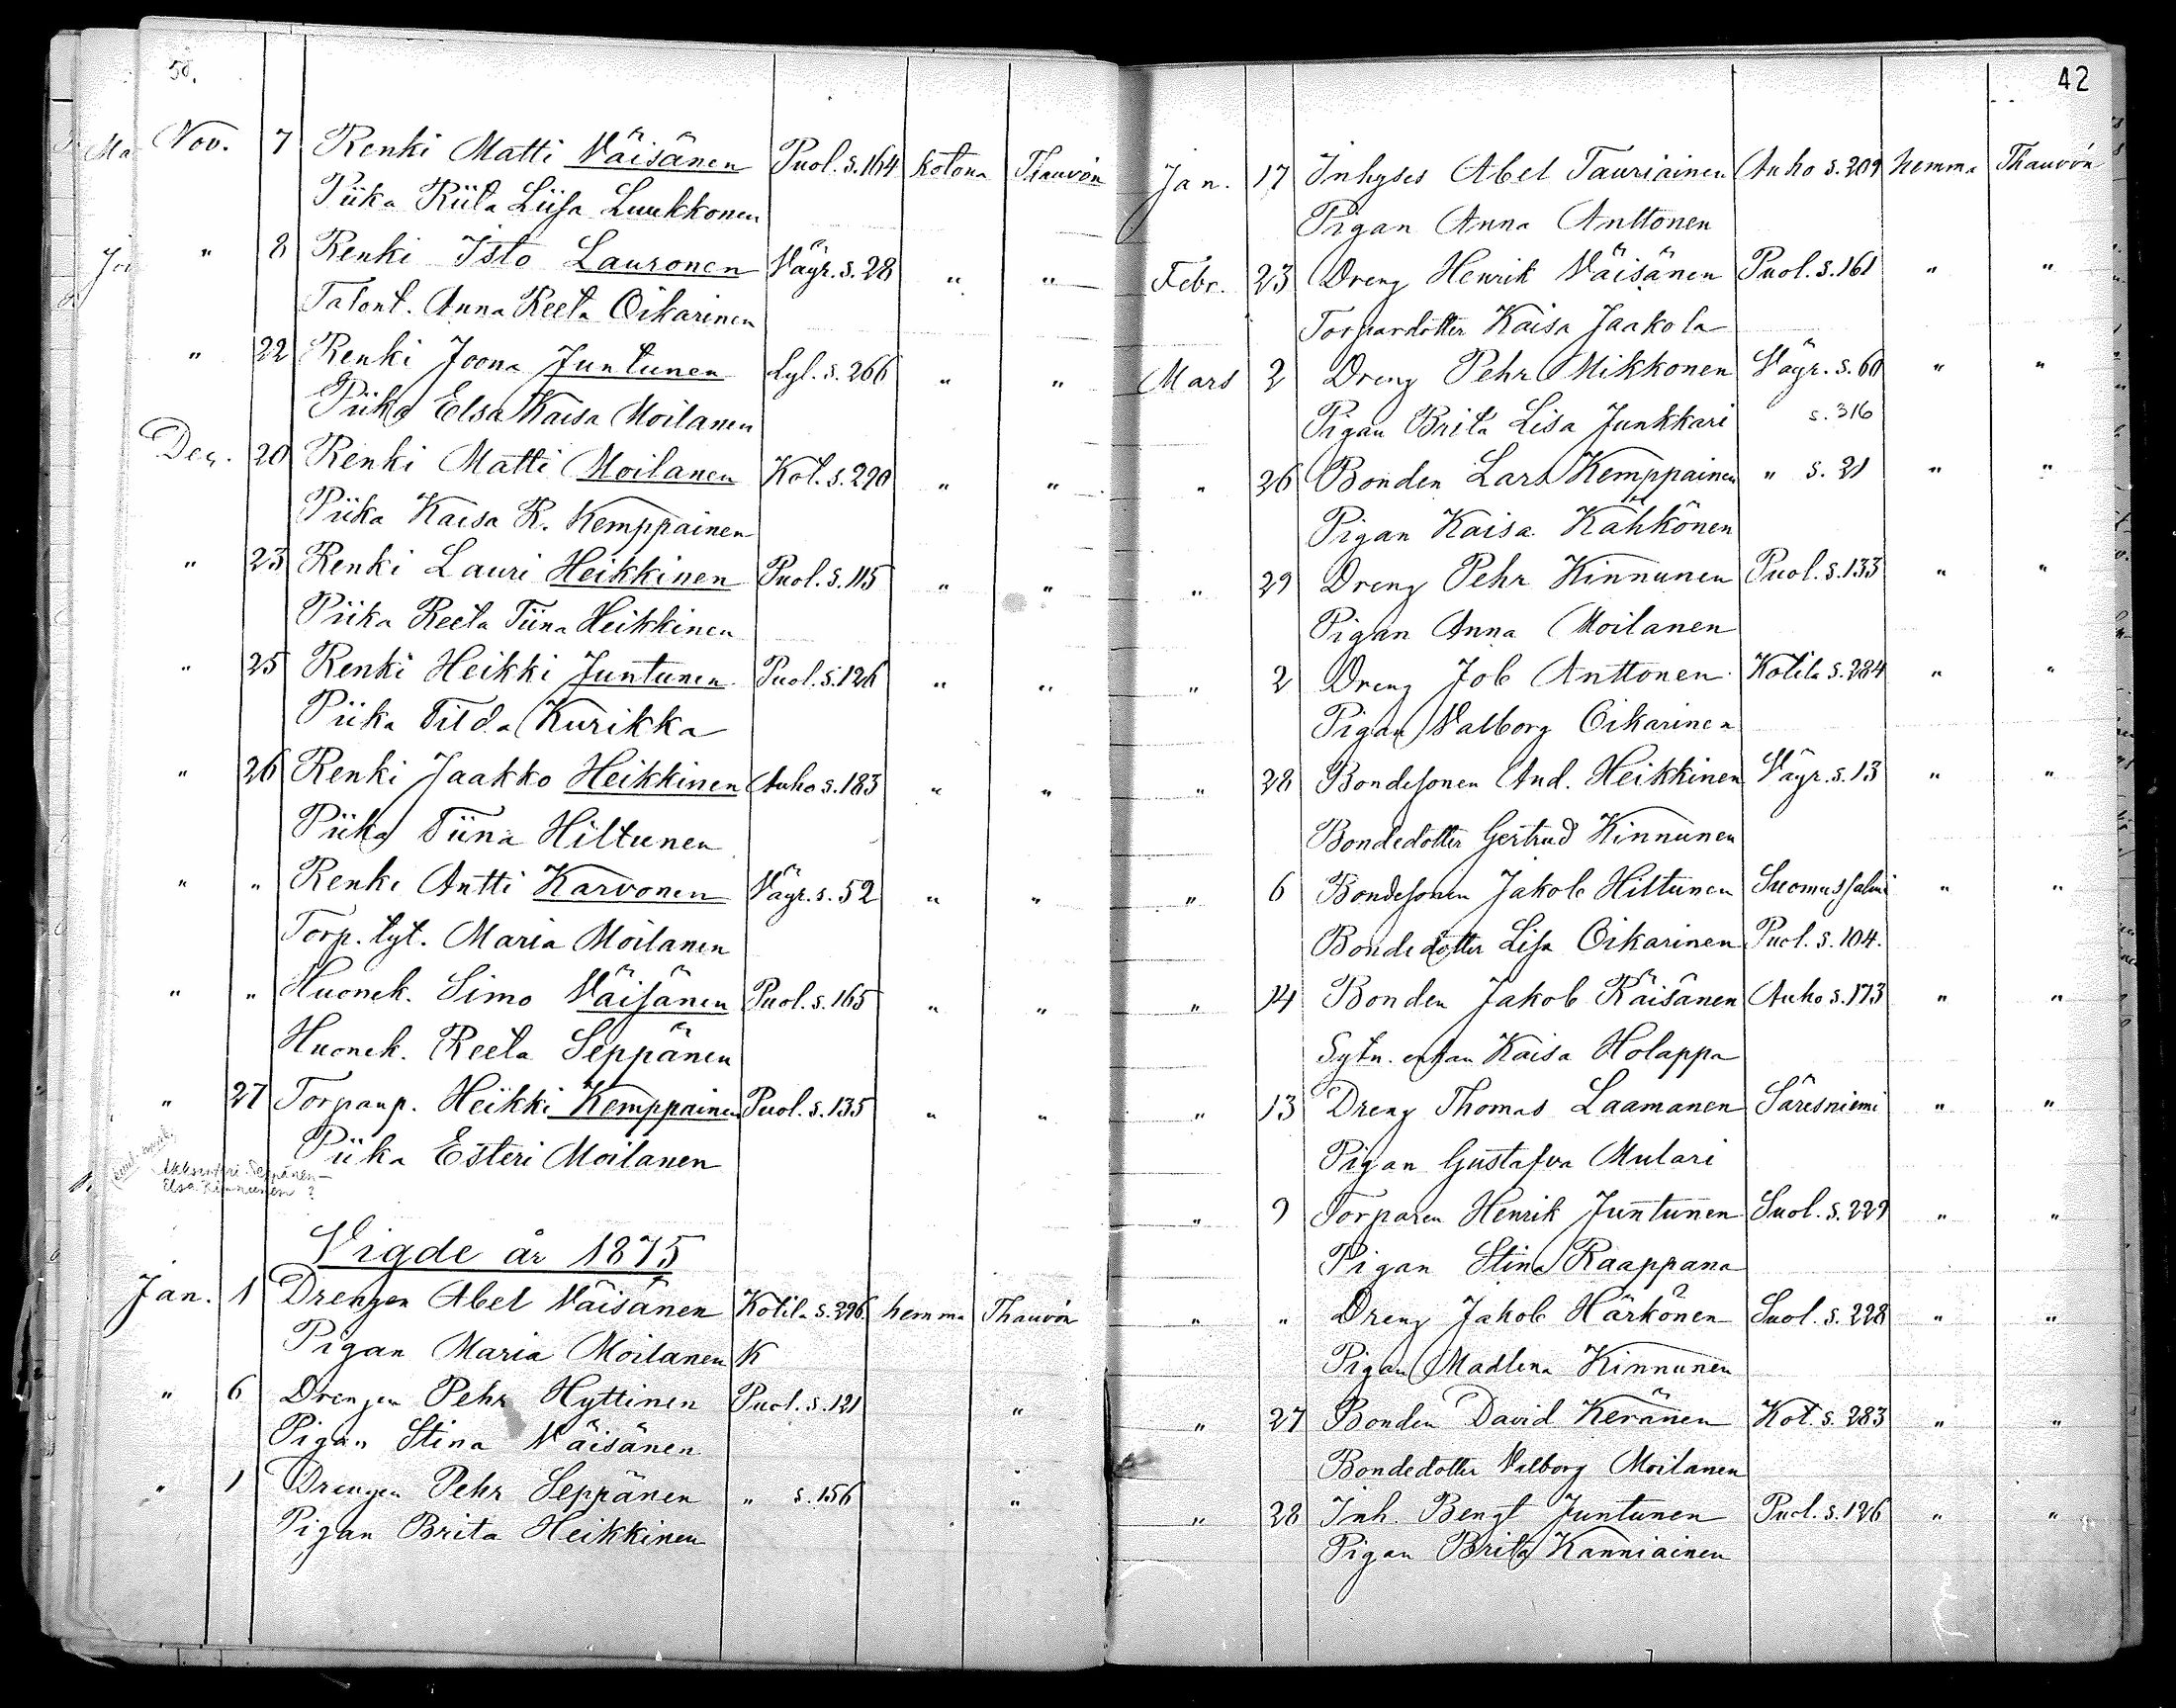 58.
Nov. 7 Renki Matti Väisänen Puol. s. 164 kotona Thauvón
Piika Riita Liisa Luukkonen
" 8 Renki Isto Lauronen Väyr. s. 28 " "
Talont. Anna Reeta Oikarinen
" 22 Renki Joona Juntunen Lyl. s. 266 " "
Piika Elsa Kaisa Moilanen
Dec. 20 Renki Matti Moilanen Kot. s. 290 " "
Piika Kaisa R. Kemppainen
" 23 Renki Lauri Heikkinen Puol. s. 115 " "
Piika Reeta Tiina Heikkinen
" 25 Renki Heikki Juntunen Puol. s. 126 " "
Piika Tilda Kurikka
" 26 Renki Jaakko Heikkinen Auho s. 183 " "
Piika Tiina Hiltunen
" " Renki Antti Karvonen Väyr. s. 52 " "
Torp. tyt. Maria Moilanen
" " Huonek. Simo Väisänen Puol. s. 165 " "
Huonek. Reeta Seppänen
" 27 Torpanp. Heikki Kemppainen Puol. s. 135 " "
Piika Esteri Moilanen
Seppänen -
Elsa Kinnunen ?
Vigde år 1875
Jan. 1 Drengen Abel Väisänen Kotila s. 296. hemma Thauvón
Pigan Maria Moilanen K
" 6 Drengen Pehr Hyttinen Puol. s. 121 "
Pigan Stina Väisänen
" 1 Drengen Pehr Seppänen " s. 156 "
Pigan Brita Heikkinen
42
Jan. 17 Inhyses Abel Tauriainen Auho s. 209 hemma Thauvón
Pigan Anna Anttonen
Febr. 23 Dreng Henrik Väisänen Puol. s. 161 " "
Torpardotter Kaisa Jaakola
Mars 2 Dreng Pehr Mikkonen Väyr. s. 60 " "
Pigan Brita Lisa Junkkari s. 316
" 26 Bonden Lars Kemppainen " s. 21 " "
Pigan Kaisa Kähkönen
" 29 Dreng Pehr Kinnunen Puol. s. 133 " "
Pigan Anna Moilanen
" 2 Dreng Job Anttonen Kotila s. 284 " "
Pigan Valborg Oikarinen
" 28 Bondesonen And. Heikkinen Väyr. s. 13 " "
Bondedotter Gertrud Kinnunen
" 6 Bondesonen Jakob Hiltunen Suomussalmi " "
Bondedotter Lisa Oikarinen Puol. s. 104.
" 14 Bonden Jakob Räisänen Auho s. 173 " "
Sytn. enkan Kaisa Holappa
" 13 Dreng Thomas Laamanen Säresniemi " "
Pigan Gustafva Mulari
" 9 Torparen Henrik Juntunen Suol. s. 229 " "
Pigan Stina Raappana
" " Dreng Jakob Härkönen Suol. s. 228 " "
Pigan Madlena Kinnunen
" 27 Bonden David Keränen Kot. s. 283 " "
Bondedotter Valborg Moilanen
" 28 Inh. Bengt Juntunen Puol. s. 126 " "
Pigan Brita Kanniainen